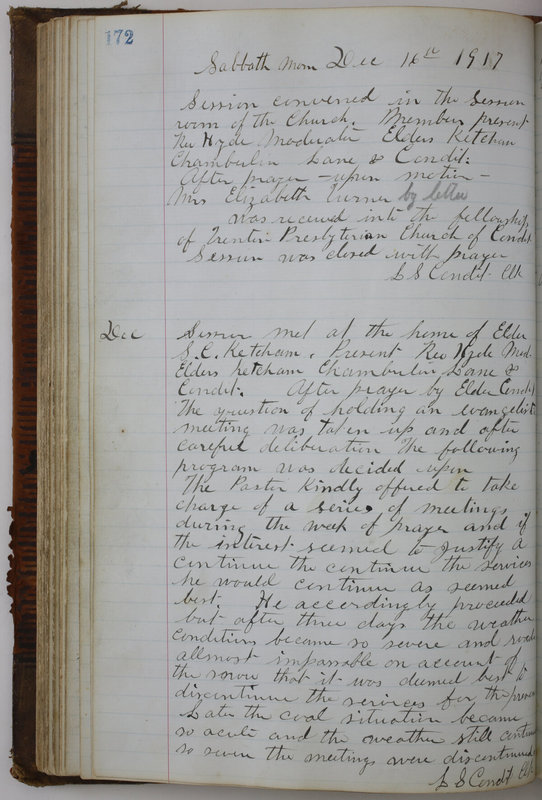 172
Sabbath Morn Dec 16th 1917
Session convened in the Session
room of the Church. Members present
Rev Hyde Moderator Elders Ketcham
Chamberlin Lane & Condit.
After prayer - upon motion -
Mrs Elizabeth Turner by letter
was received into the fellowship
of Trenton Presbyterian Church of Condit
Session was closed with prayer
S S Condit Clk
Dec Session met at the home of Elder
S. C. Ketcham. Present Rev Hyde Mod-
Elders Ketcham Chamberlin Lane &
Condit. After prayer by Elder Condit
The question of holding an evangelistic
meeting was taken up and after
careful deliberation the following
program was decided upon
The Pastor Kindly offered to take
charge of a series of meetings
during the week of prayer and if
the interest seemed to justify a
continue the continue the services
he would continue as seemed
best. He accordingly proceeded
but after three days the weather
conditions became so severe and roads
allmost impassable on account of
the snow that it was deemed best to
discontinue the services for the present
Later the coal situation became
so acute and the weather still continued
so severe the meetings were discontinued
S S Condit Clk